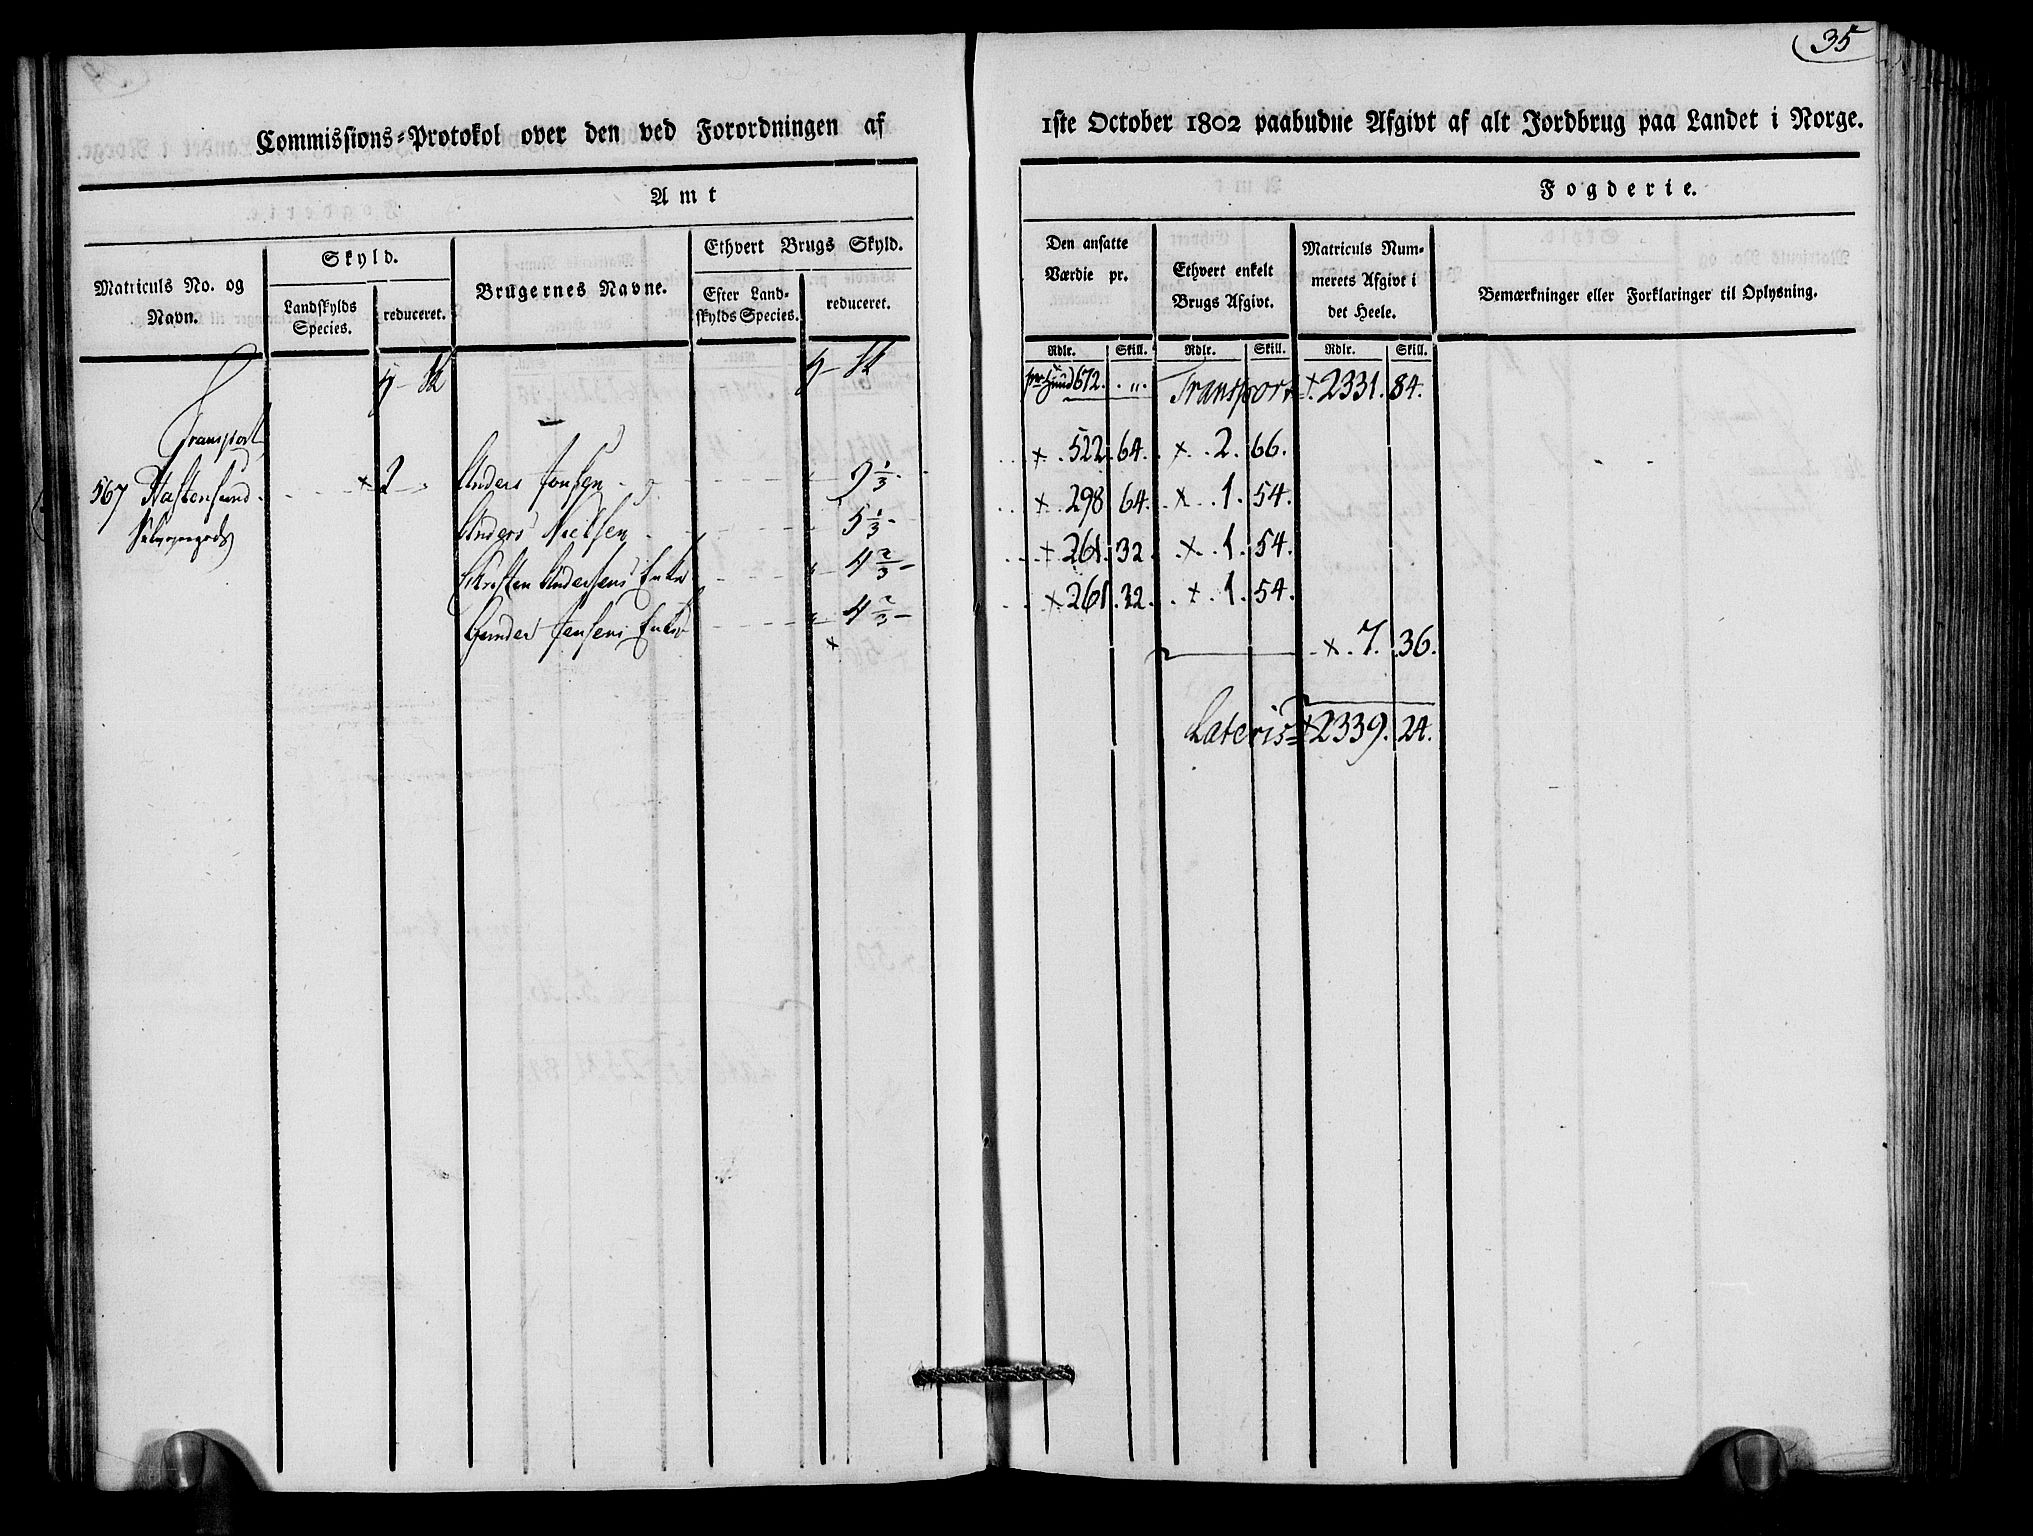 35
Commissions-Protokol over den ved Forordningen af 1ste October 1802 paabudne Afgivt af alt Jordbrug paa Landet i Norge.
Amt Fogderie.
Matriculs No. og Navn.
Skyld.
Landskylds Species.
reduceret.
Brugernes Navne.
Ethvert Brugs Skyld.
Efter Landskylds Species.
reduceret.
Den ansatte Værdie pr.
Ethvert enkelt Brugs Afgivt.
Matriculs Nummerets Afgivt i det Heele.
Bemærkninger eller Forklaringer til Oplysning.
Rdlr. Skill. Rdlr. Skill. Rdlr. Skill.
pr Hund 672. „ Transport 2331. 84.
Transport
567 Hastensund 2 Anders Jensen 9 1/3 522. 64. 2. 66.
Anders Nielsen 5 1/3 298 64. 1. 54.
Christen Andersens Enke 4 2/3 261. 32 1. 54.
Gunder Jensens Enke 4 2/3 261. 32. 1. 54.
7. 36.
Lateris 2339. 24.